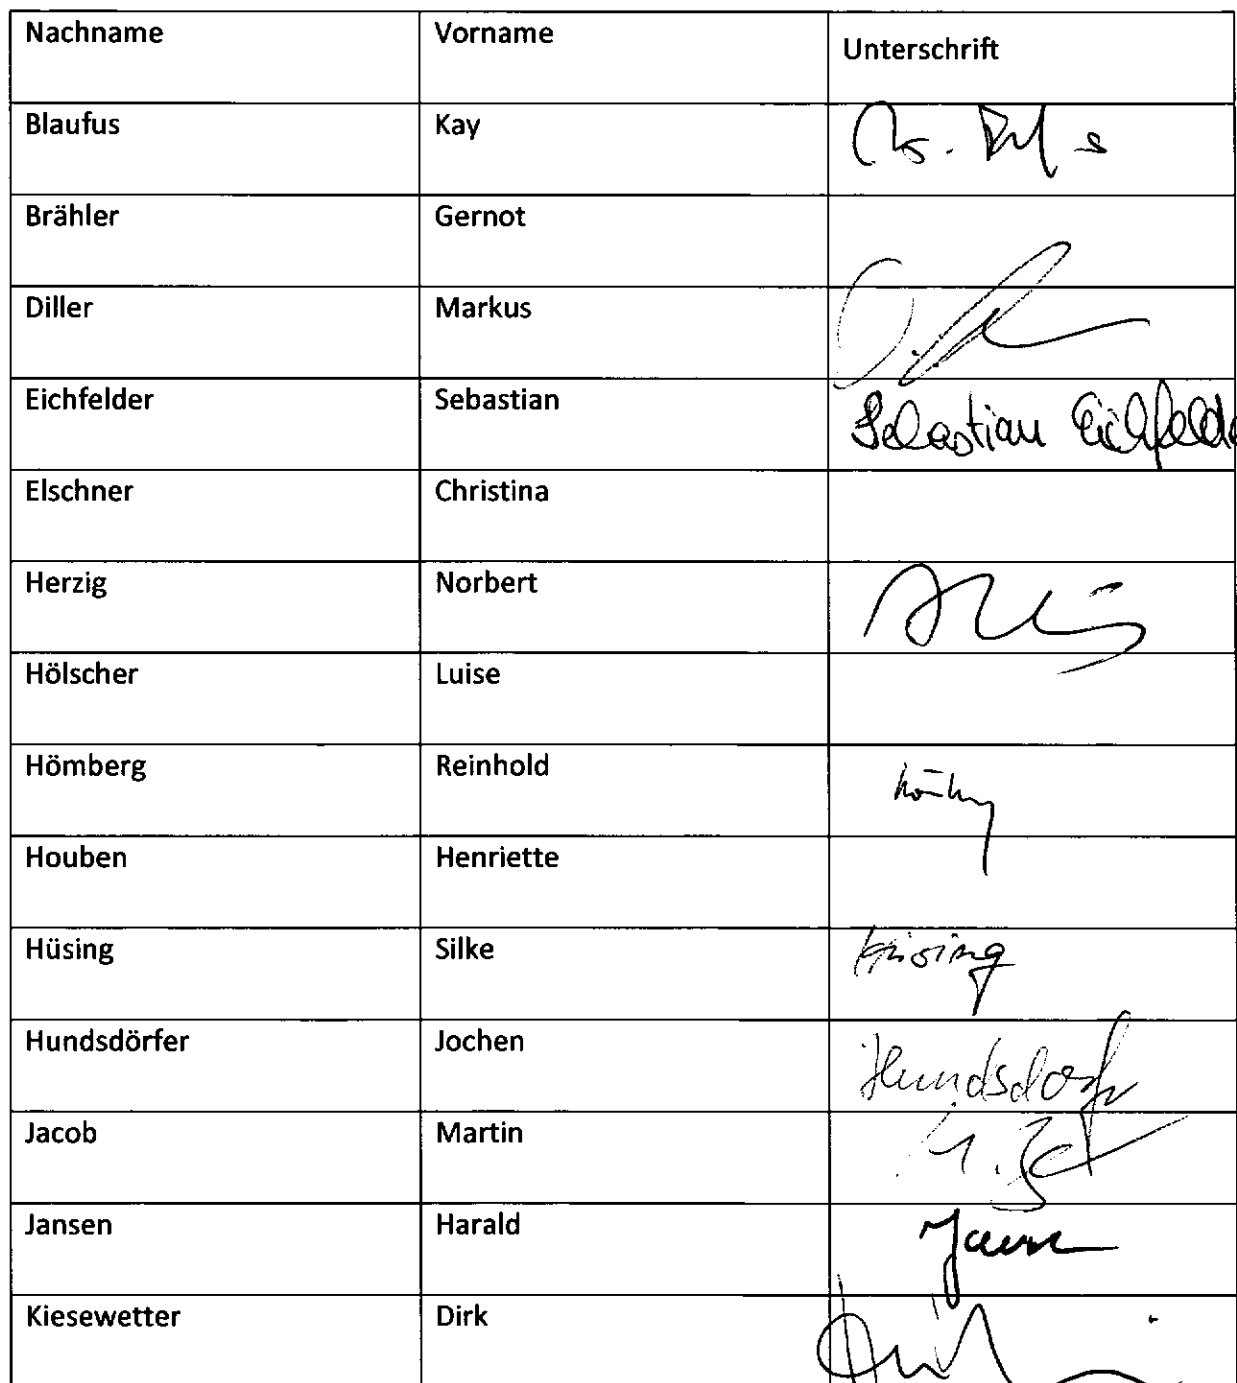 Nachname Vorname Unterschrift
Blaufus Kay
Brähler Gernot
Diller Markus
Eichfelder Sebastian Sebastian Eichfelde
Elschner Christina
Herzig Norbert
Hölscher Luise
Hömberg Reinhold
Houben Henriette
Hüsing Silke Hüsing
Hundsdörfer Jochen
Jacob Martin
Jansen Harald
Kiesewetter Dirk